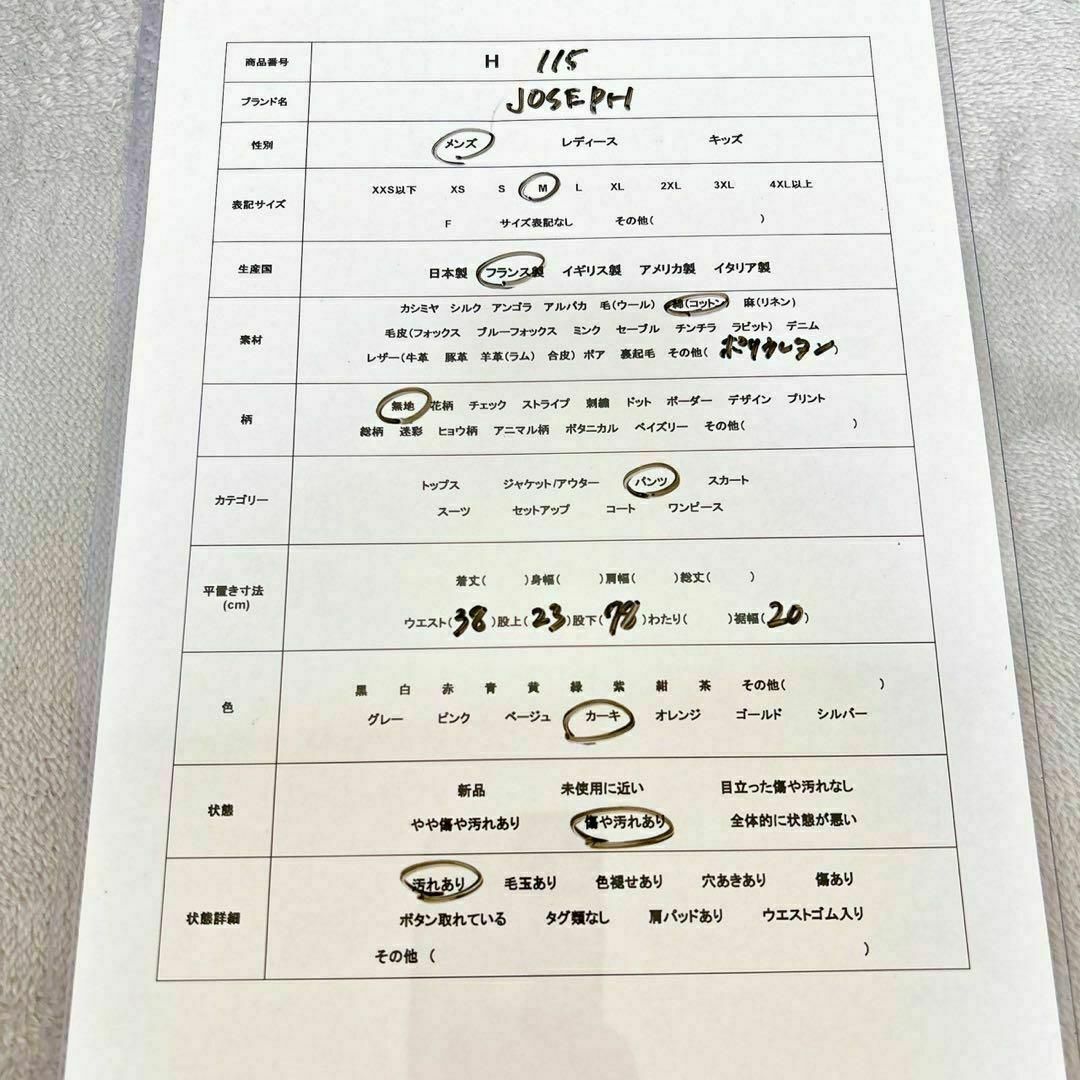 商品番号 H 115
ブランド名 JOSEPH
性別 メンズ レディース キッズ
表記サイズ XXS以下 XS S M L XL 2XL 3XL 4XL以上
F サイズ表記なし その他( )
生産国 日本製 フランス製 イギリス製 アメリカ製 イタリア製
素材 カシミヤ シルク アンゴラ アルパカ 毛(ウール) 綿(コットン) 麻(リネン)
毛皮(フォックス ブルーフォックス ミンク セーブル チンチラ ラビット) デニム
レザー(牛革 豚革 羊革(ラム) 合皮) ボア 裏起毛 その他( ポリウレタン )
柄 無地 花柄 チェック ストライプ 刺繍 ドット ボーダー デザイン プリント
総柄 迷彩 ヒョウ柄 アニマル柄 ボタニカル ペイズリー その他( )
カテゴリー トップス ジャケット/アウター パンツ スカート
スーツ セットアップ コート ワンピース
平置き寸法 (cm) 着丈( )身幅( )肩幅( )総丈( )
ウエスト(38)股上(23)股下(78)わたり( )裾幅(20)
色 黒 白 赤 青 黄 緑 紫 紺 茶 その他( )
グレー ピンク ベージュ カーキ オレンジ ゴールド シルバー
状態 新品 未使用に近い 目立った傷や汚れなし
やや傷や汚れあり 傷や汚れあり 全体的に状態が悪い
状態詳細 汚れあり 毛玉あり 色褪せあり 穴あきあり 傷あり
ボタン取れている タグ類なし 肩パッドあり ウエストゴム入り
その他 ( )